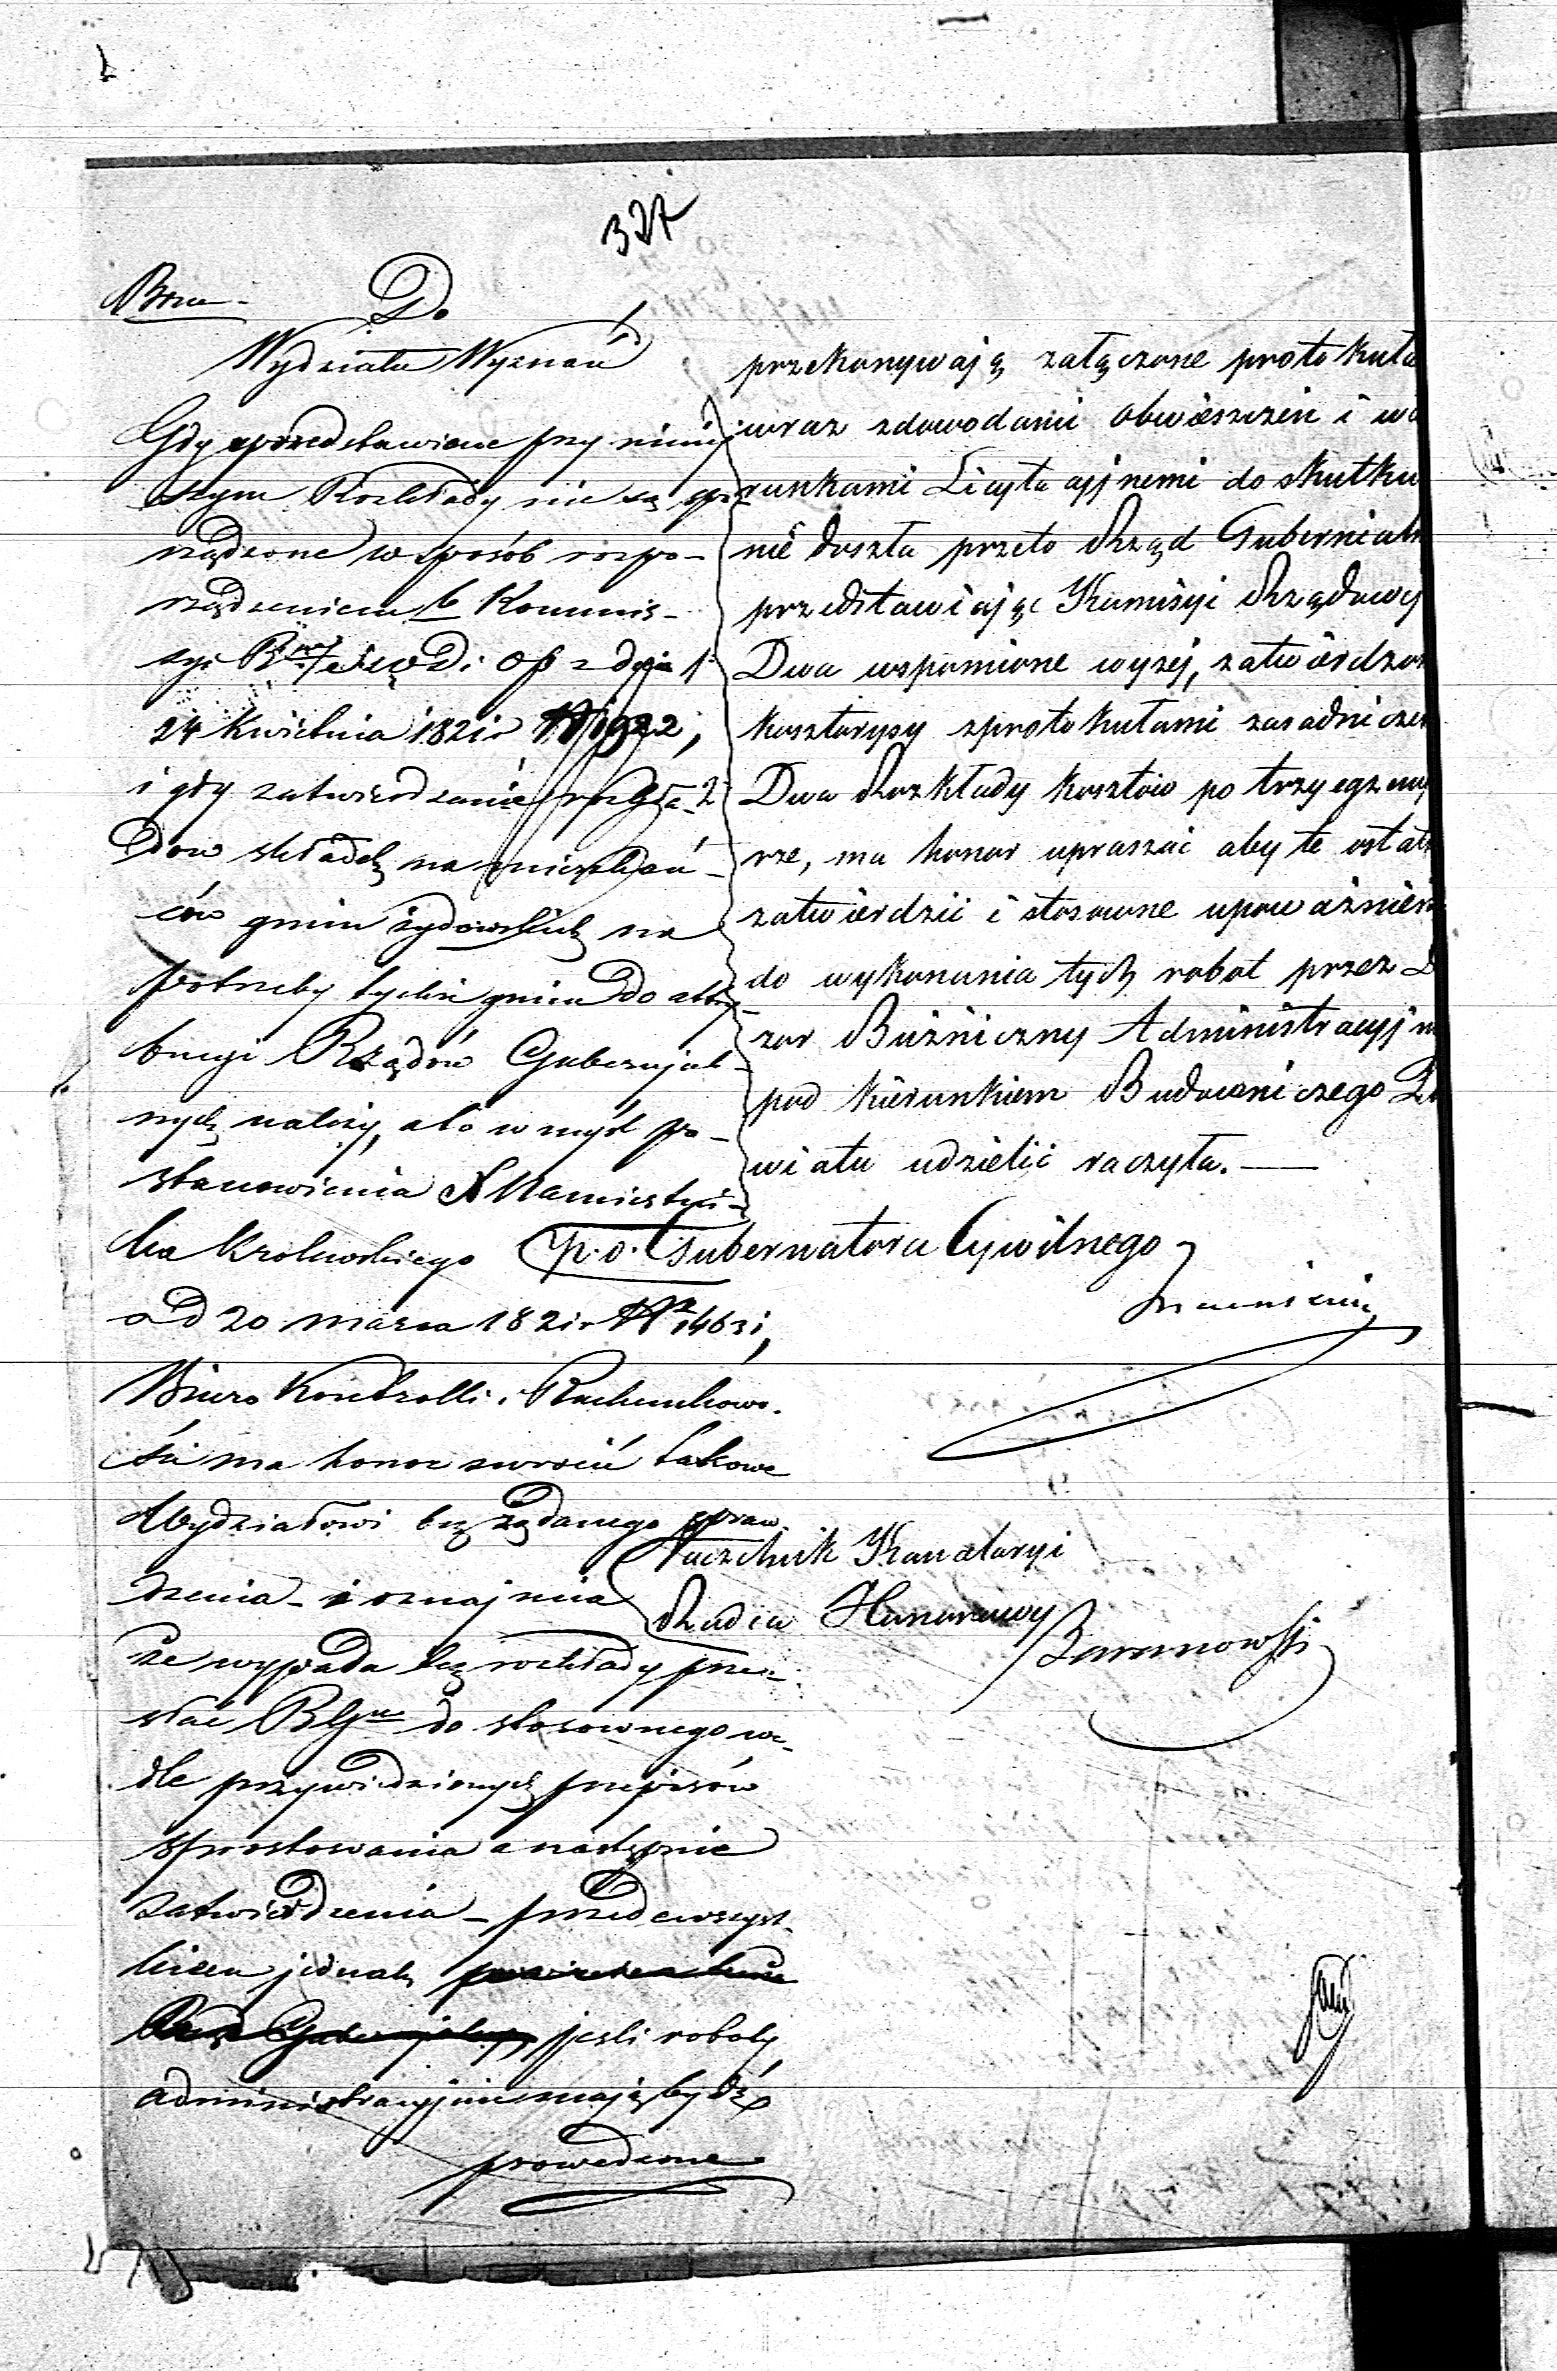 327
Do
Wydziału Wyznań
Gdy przedstawione przy niniej
szym Rozkłady nie są spo
rządzone w sposób rozpo-
rządzeniem b Kommis-
syi z dnia
24 Kwietnia 1821 r
i gdy zatwierdzanie rozkła-
dow składek na mieszkań-
ców gmin żydowskich na
potrzeby tychże gmin do attry-
bucyi Rządów Gubernjal-
nych należy, a to w myśl po-
stanowienia X Namiestni-
ka Krolewskiego
od 20 marca 1821 r
Biuro Kontrolli i Rachunkowo-
ści ma honor zwrócić takowe
Wydziałowi bez żądanego spraw-
dzenia - i oznajmia
że wypada też rozkłady prze-
słać do stosownego we-
dle przywiedzionych przepisów
sprostowania a następnie
zatwierdzenia - przedewszyst-
kiem jednak
jeśli roboty
administracyjnie mają bydź
prowadzone
przekonywają załączone protokuła
wraz zdowodami obwieszczeń i wa
runkami Licytacyjnemi do skutku
nie doszła przeto Rząd Gubernialn
przedstawiając Kamisyi Rządowy
Dwa wspomione wyżej, zatwierdzon
kosztorysy zprotokułami zasadnicze
Dwa Rozkłady kosztów po trzy egzemp
rze, ma honor upraszać aby te ostat
zatwierdzić i stosowne upoważnien
do wykonania tych robot przez D
zor Bużniczny Administracyjn
pod kierunkiem Budowniczego Po
wiatu udzielić raczyła. —
p. o. Gubernatora Cywilnego
Naczelnik Kancelaryi
Radca Honorowy
Baranowski